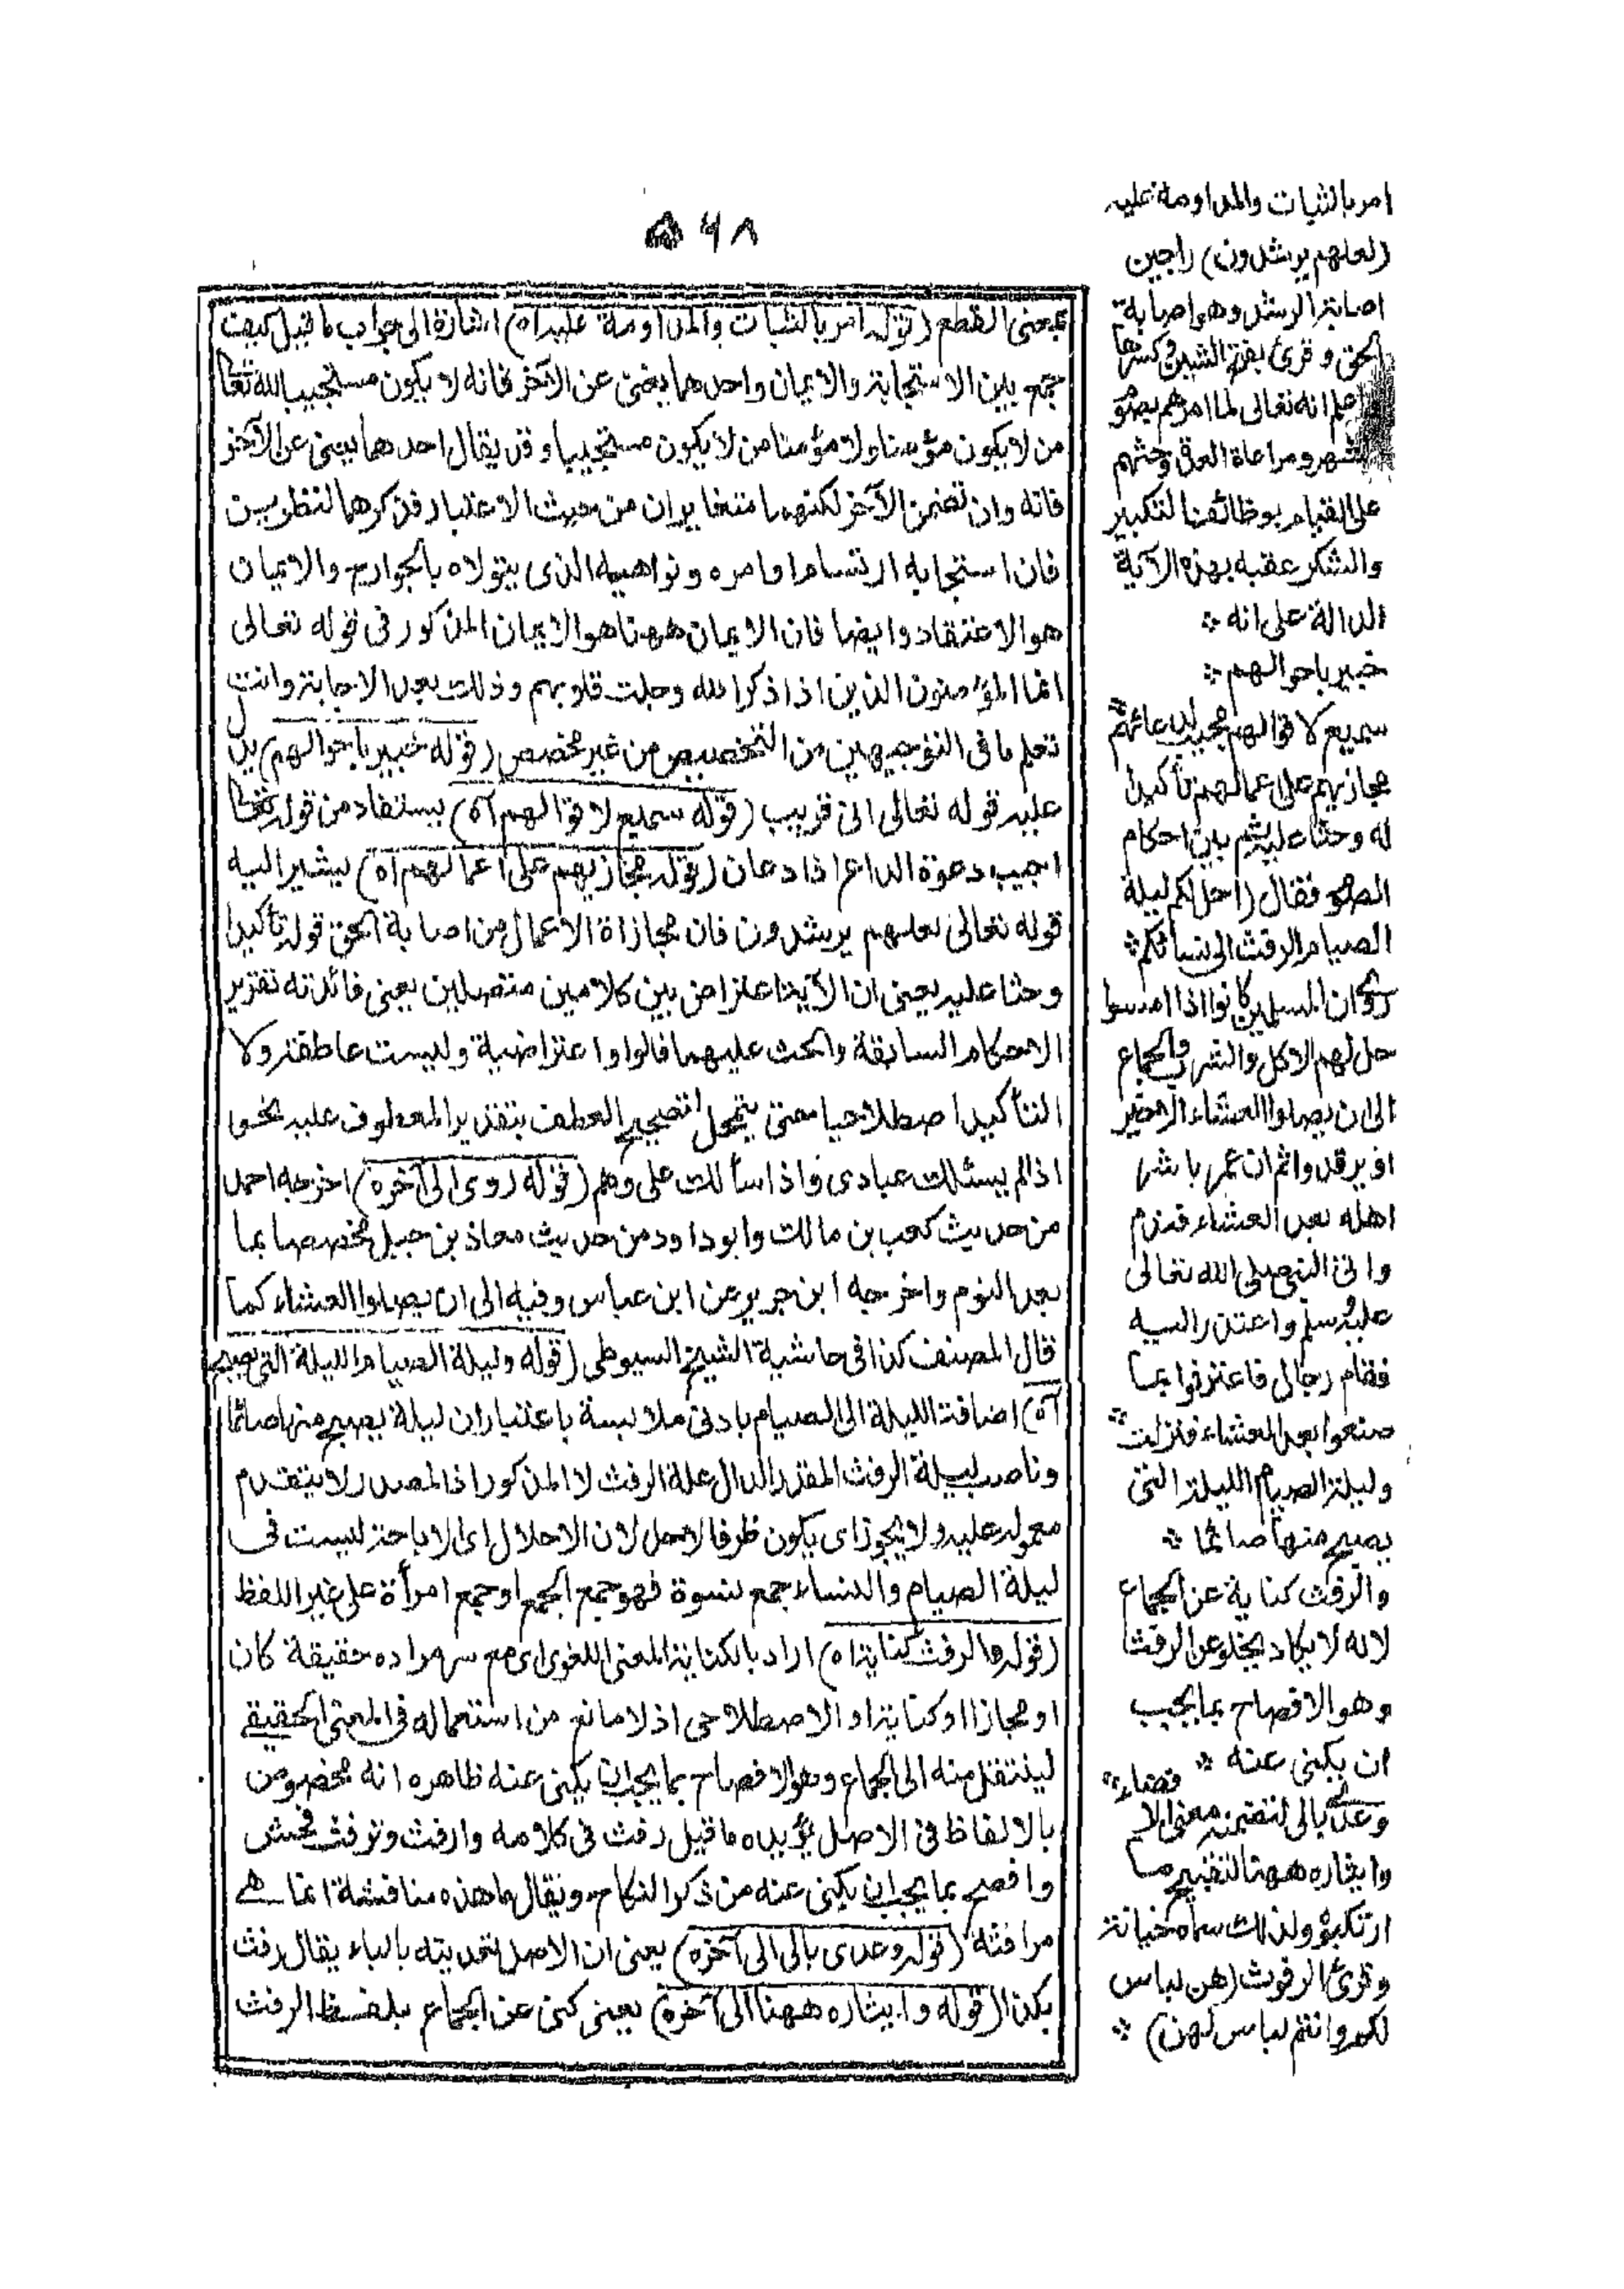 ٥٦٨
بمعنى القطع (قوله امر بالثبات والمداومة عليه اه) اشارة الى جواب ما قيل كيف
جمع بين الاستجابة والايمان واحدهما يغنى عن الآخر فانه لا يكون مستجيبا لله تعالى
من لا يكون مؤمنا ولا مؤمنا من لا يكون مستجيبا وقد يقال احدهما يغنى عن الآخر
فانه وان تضمن الآخر لكنهما متغايران من حيث الاعتبار فذكرهما لنظرين
فان استجابه ارتسام اوامره ونواهيه الذى يتولاه بالجوارح والايمان
هو الاعتقاد وايضا فان الايمان ههنا هو الايمان المذكور فى قوله تعالى
انما المؤمنون الذين اذا ذكر الله وجلت قلوبهم وذلك بعد الاجابة وانت
تعلم ما فى التوجيهين من التخصيص من غير مخصص (قوله خبير باحوالهم) يدل
عليه قوله تعالى انى قريب (قوله سميع لاقوالهم اه) يستفاد من قوله تعالى
اجيب دعوة الداع اذا دعان (قوله مجازيهم على اعمالهم اه) يشير اليه
قوله تعالى لعلهم يرشدون فان مجازاة الاعمال من اصابة الحق قوله تأكيدا
وحثا عليه يعنى ان الآية اعتراض بين كلامين متصلين يعنى فائدته تقرير
الاحكام السابقة والحث عليهما فالواو اعتراضية وليست عاطفة ولا
التأكيد اصطلاحيا حتى يتمحل لتصحيح العطف بتقدير المعطوف عليه نحو
اذا لم يسئلك عبادى واذا سألك على وهم (قوله روى الى آخره) اخرجه احمد
من حديث كعب بن مالك وابو داود من حديث معاذ بن جبل مخصصا بما
بعد النوم واخرجه ابن جرير عن ابن عباس وفيه الى ان يصلوا العشاء كما
قال المصنف كذا فى حاشية الشيخ السيوطى (قوله وليلة الصيام الليلة التى يصبح
اه) اضافة الليلة الى الصيام بادنى ملابسة باعتبار ان ليلة يصبح منها صائما
وناصب ليلة الرفث المقدر الدال علة الرفث لا المذكور اذ المصدر لا يتقدم
معموله عليه ولا يجوز اى يكون ظرفا لاحل لان الاحلال اى الاباحة ليست فى
ليلة الصيام والنساء جمع نسوة فهو جمع الجمع او جمع امرأة على غير اللفظ
(قوله والرفث كناية اه) اراد بالكناية المعنى اللغوى اى مع سهراده حقيقة كان
او مجازا او كناية او الاصطلاحى اذ لا مانع من استعماله فى المعنى الحقيقے
لينتقل منه الى الجماع وهو الافصاح بما يجب ان يكنى عنه ظاهره انه مخصوص
بالالفاظ فى الاصل يؤيده ما قيل رفث فى كلامه وارفث وترفث فحش
وافصح بما يجب ان يكنى عنه من ذكر النكاح ويقال ما هذه منافشة انما هے
مرافثة (قوله وعدى بالى الى آخره) يعنى ان الاصل تعديته بالباء يقال رفث
بكذا (قوله وايثاره ههنا الى آخره) يعنى كنى عن الجماع بلفظ الرفث
امر بالثبات والمداومة عليه
(لعلهم يرشدون) راجين
اصابة الرشد وهو اصابة
الحق وقرئ بفتح الشين وكسرها
واعلم انه تعالى لما امرهم بصوم
الشهر ومراعاة العدة وحثهم
على القيام بوظائف التكبير
والشكر عقبه بهذه الآية
الدالة على انه
خبير باحوالهم
سميع لاقوالهم مجيب لدعائهم
مجازيهم على اعمالهم تأكيدا
له وحثا عليه ثم بين احكام
الصوم فقال (احل لكم ليلة
الصيام الرفث الى نسائكم
روى ان المسلمين كانوا اذا امسوا
حل لهم الاكل والشرب والجماع
الى ان يصلوا العشاء الاخير
او يرقدوا ثم ان عمر باشر
اهله بعد العشاء فندم
واتى النبى صلى الله تعالى
عليه وسلم واعتذر اليه
فقام رجال فاعترفوا بما
صنعوا بعد العشاء فنزلت
وليلة الصيام الليلة التى
يصبح منها صائما
والرفث كناية عن الجماع
لانه لا يكاد يخلو عن الرفث
وهو الافصاح بما يجب
ان يكنى عنه
وعدى بالى لتضمنه معنى الافضاء
وايثاره ههنا لتقبيح ما
ارتكبوه ولذلك سماه خيانة
وقرئ الرفوث (هن لباس
لكم وانتم لباس لهن)